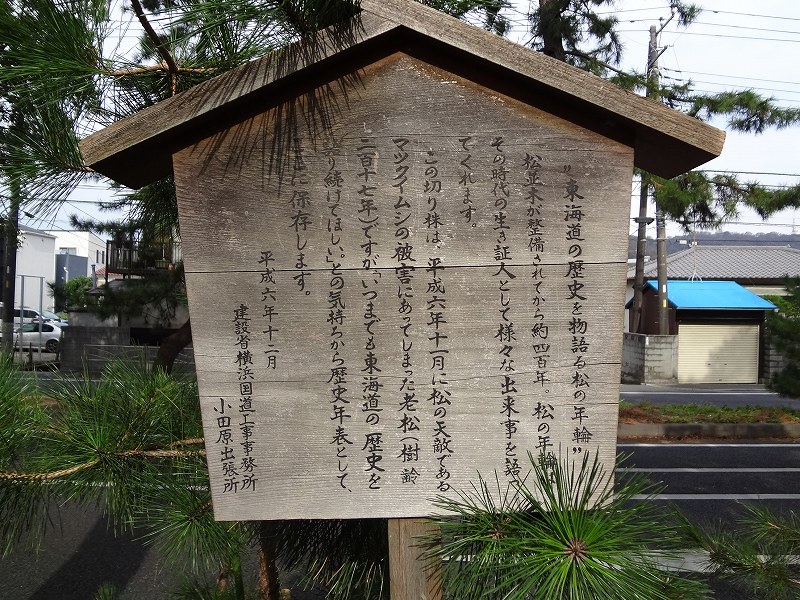 "東海道の歴史を物語る松の年輪"
松並木が整備されてから約四百年。松の年輪は
その時代の生き証人として様々な出来事を語っ
てくれます。
この切り株は、平成六年十一月に松の天敵である
マツクイムシの被害にあってしまった老松(樹齢
二百十七年)ですが、いつまでも東海道の歴史を
り続けてほしい。」との気持ちから歴史年表として、
に保存します。
平成六年十二月
建設省横浜国道工事事務所
小田原出張所